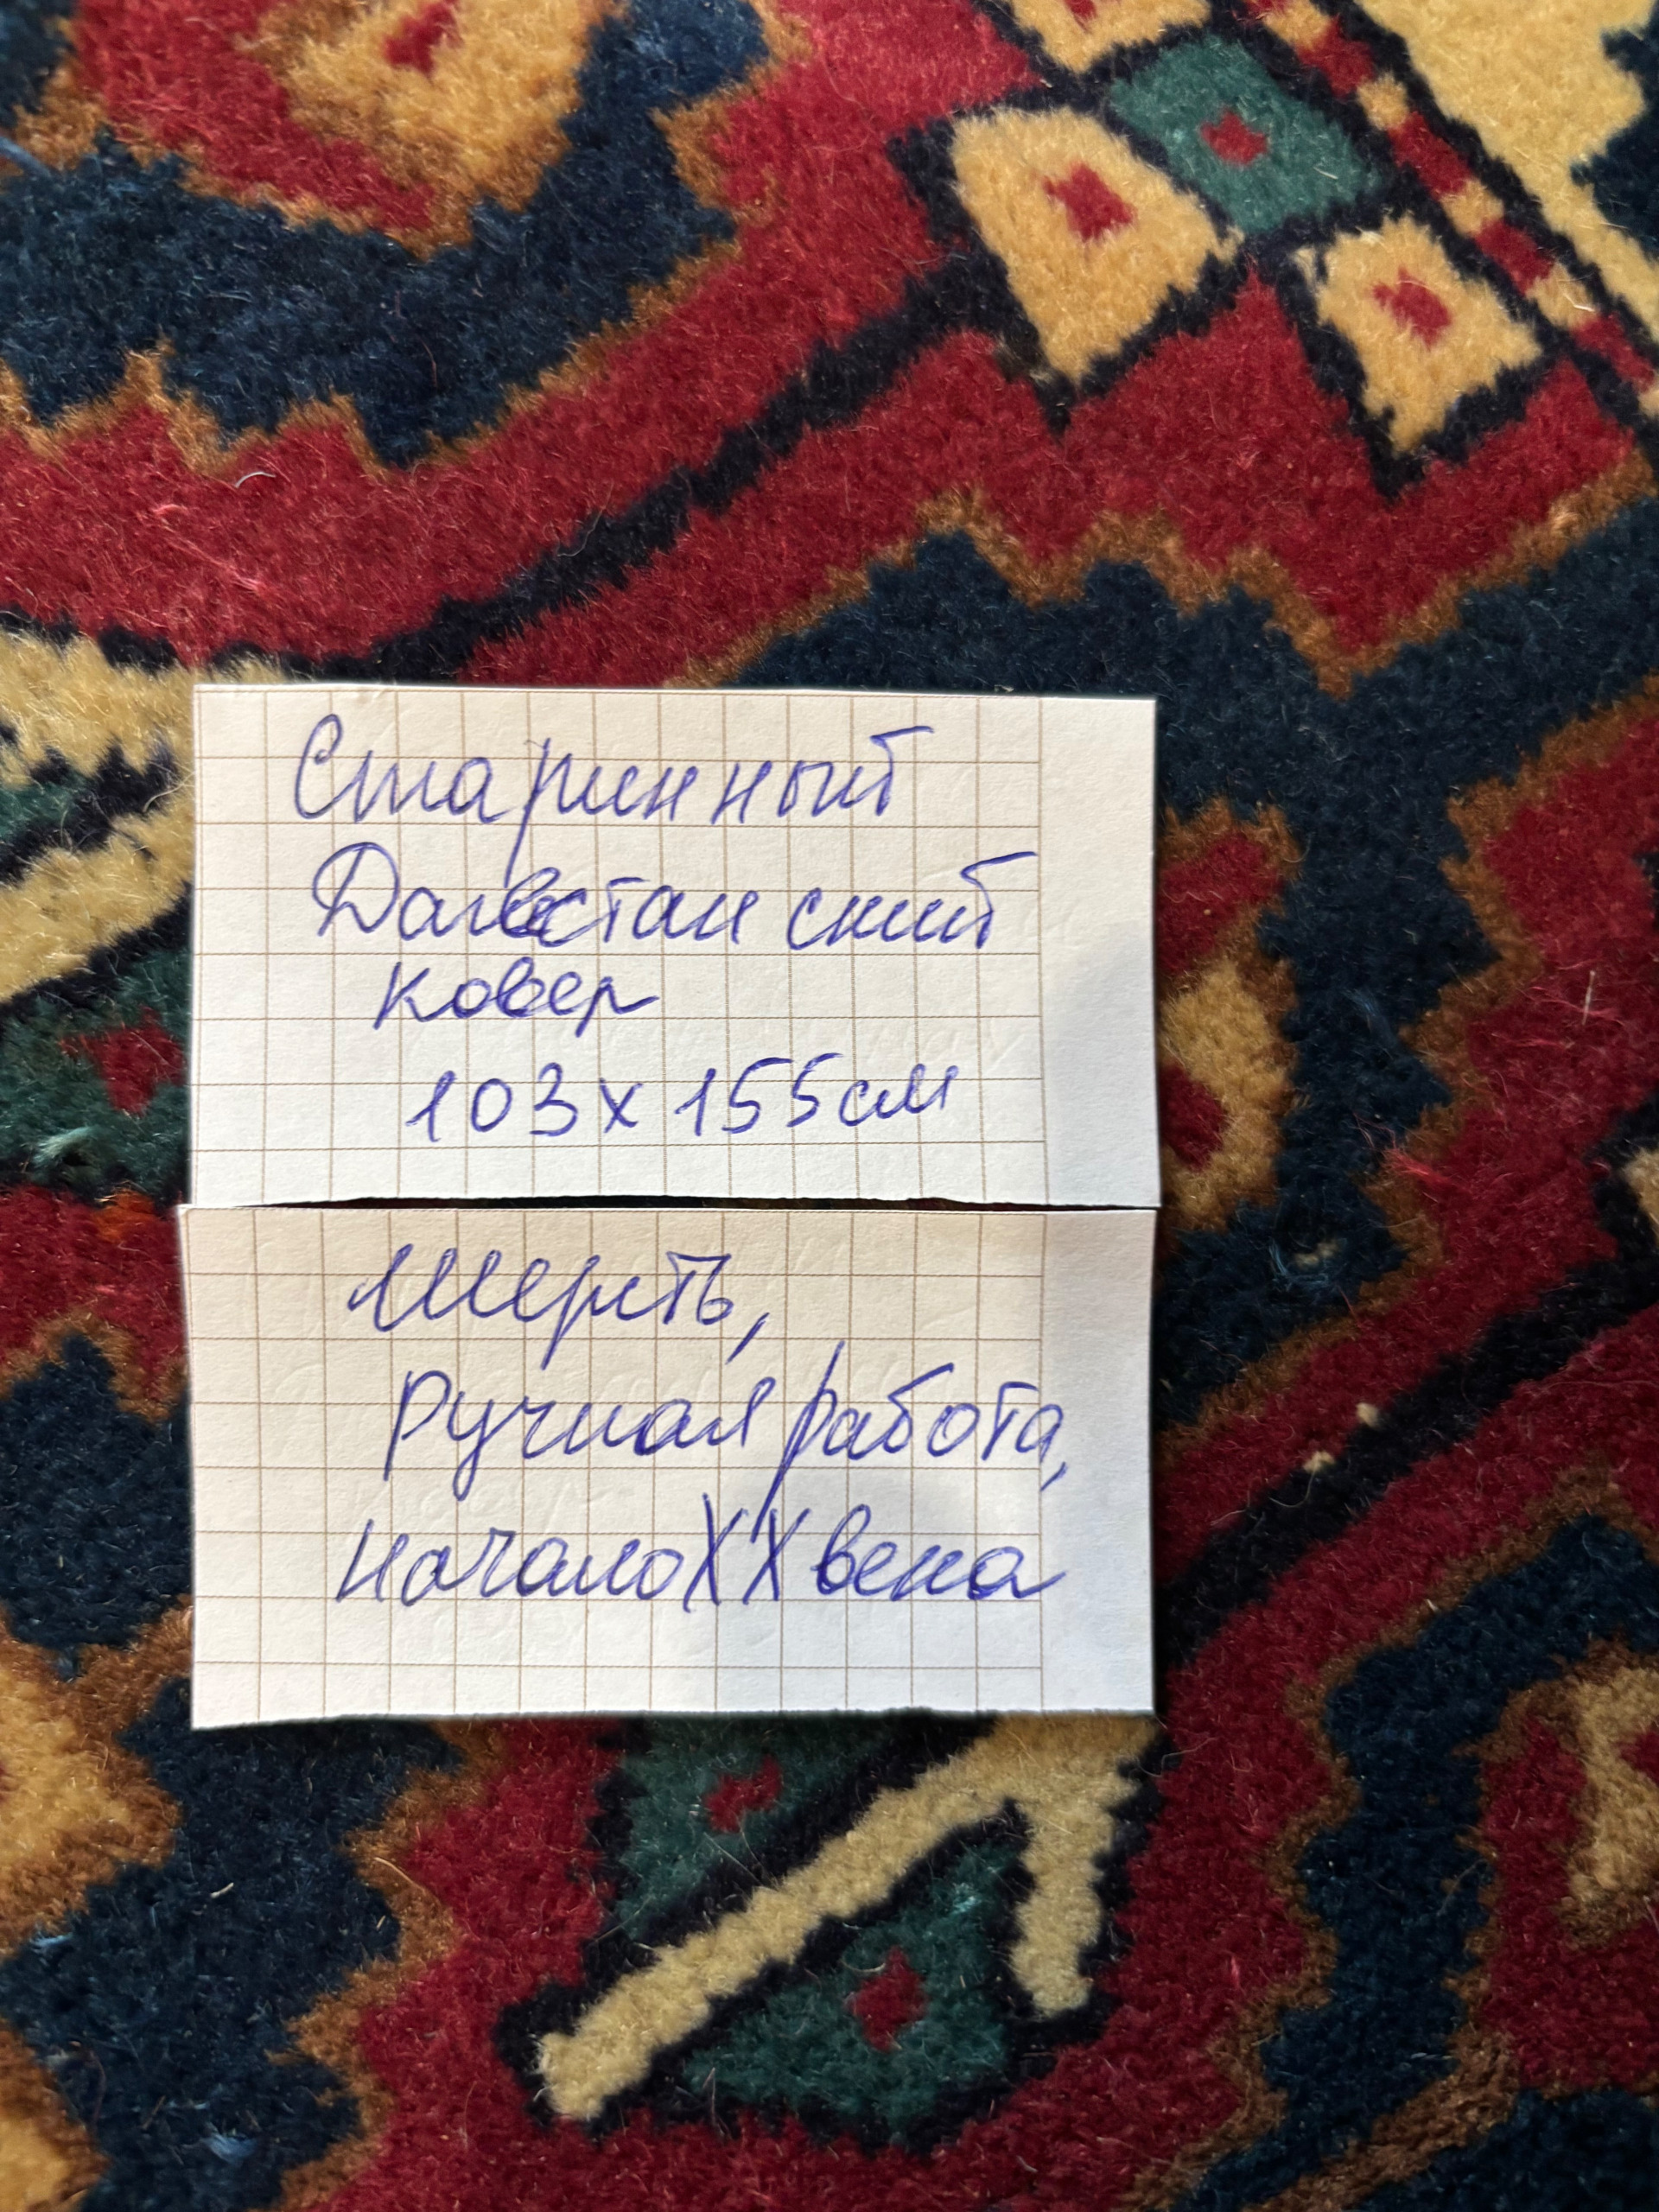 Старинный
Дагестанский
ковер
103 x 155 см
шерсть,
ручная работа,
начало XX века